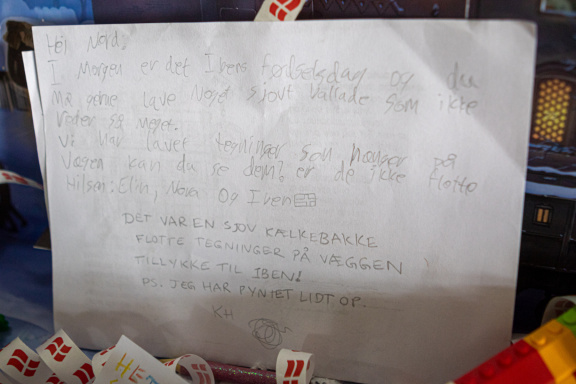 Hej Nord,
I Morgen er det Ibens fødselsdag og du
må gerne lave Noget sjovt ballade som ikke
roder så meget.
Vi har lavet tegninger som hænger på
Vægen kan du se dem? er de ikke flotte
Hilsen: Elin, Nova Og Iven
DET VAR EN SJOV KÆLKEBAKKE
FLOTTE TEGNINGER PÅ VÆGGEN
TILLYKKE TIL IBEN!
PS. JEG HAR PYNTET LIDT OP.
KH
HET